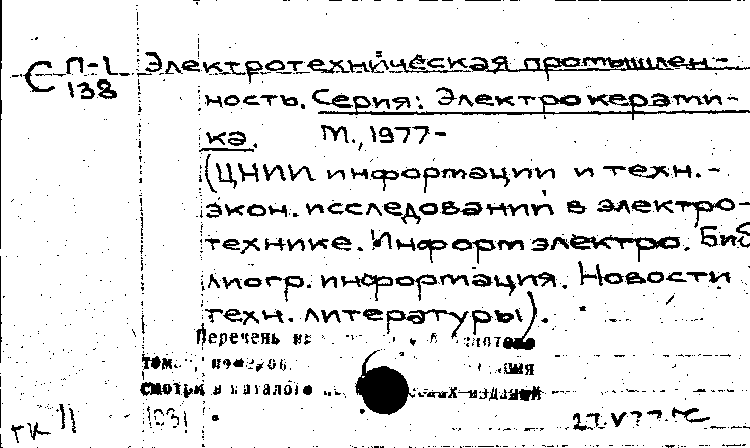 С П-1 Электротехническая промышлен-
138 ность. Серия: Электрокерами-
ка. М., 1977-
(ЦНИИ информации и техн.-
экон. исследований в электро-
технике. Информэлектро. Биб
лиогр. информация. Новости
техн. литературы).
Перечень
смотри в каталоге изданий
ГК 11 1031 27.V.77